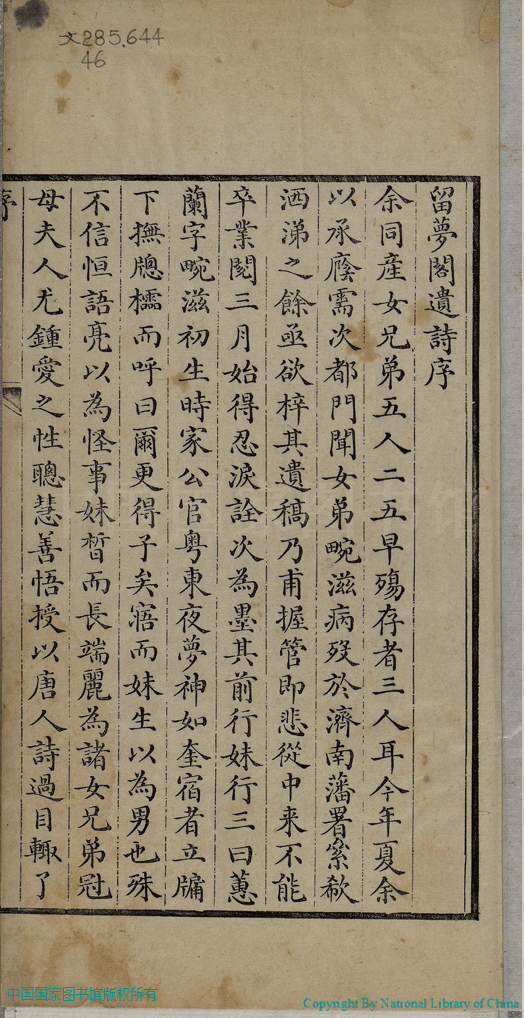 文285.644
46
留夢閣遺詩序
余同產女兄弟五人二五早殤存者三人耳今年夏余
以承廕需次都門聞女弟畹滋病歿於濟南藩署窾欷
洒涕之餘亟欲梓其遺稿乃甫握管即悲從中来不能
卒業閱三月始得忍淚詮次為墨其前行妹行三曰蕙
蘭字畹滋初生時家公官粵東夜夢神如奎宿者立牖
下撫牕櫺而呼曰爾更得子矣寤而妹生以為男也殊
不信恒語亮以為怪事妹晳而長端麗為諸女兄弟冠
母夫人尤鍾愛之性聰慧善悟授以唐人詩過目輙了
序
中国国家图书馆版权所有
Copyright By National Library of China